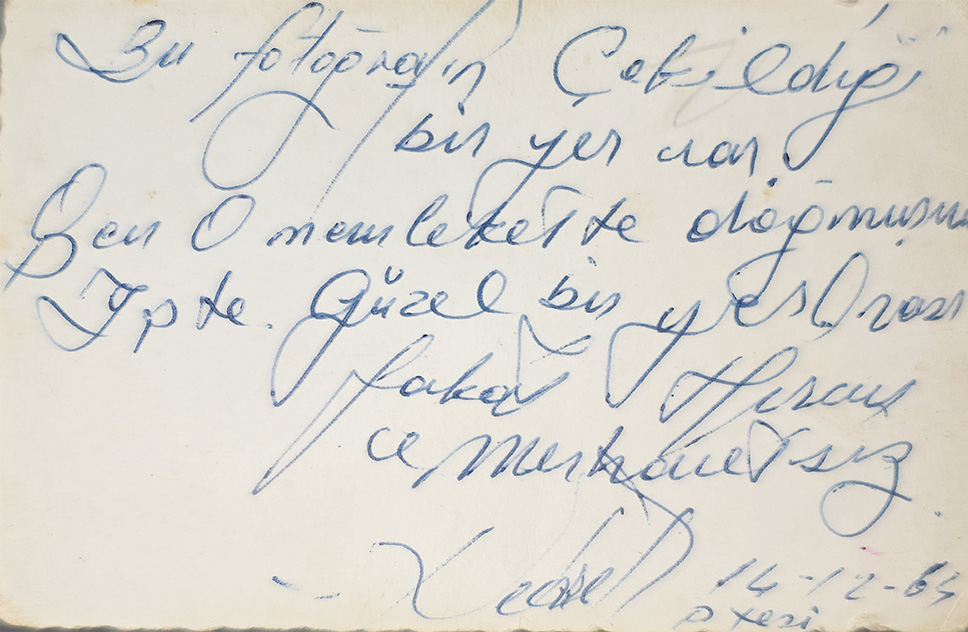 Bu fotoğrafın Çekildiği
bir yer var.
Sen O memlekette doğmuşsun
İşte. Güzel bir yer Orası
fakat Hırsız
ve Merhametsiz
14-12-65